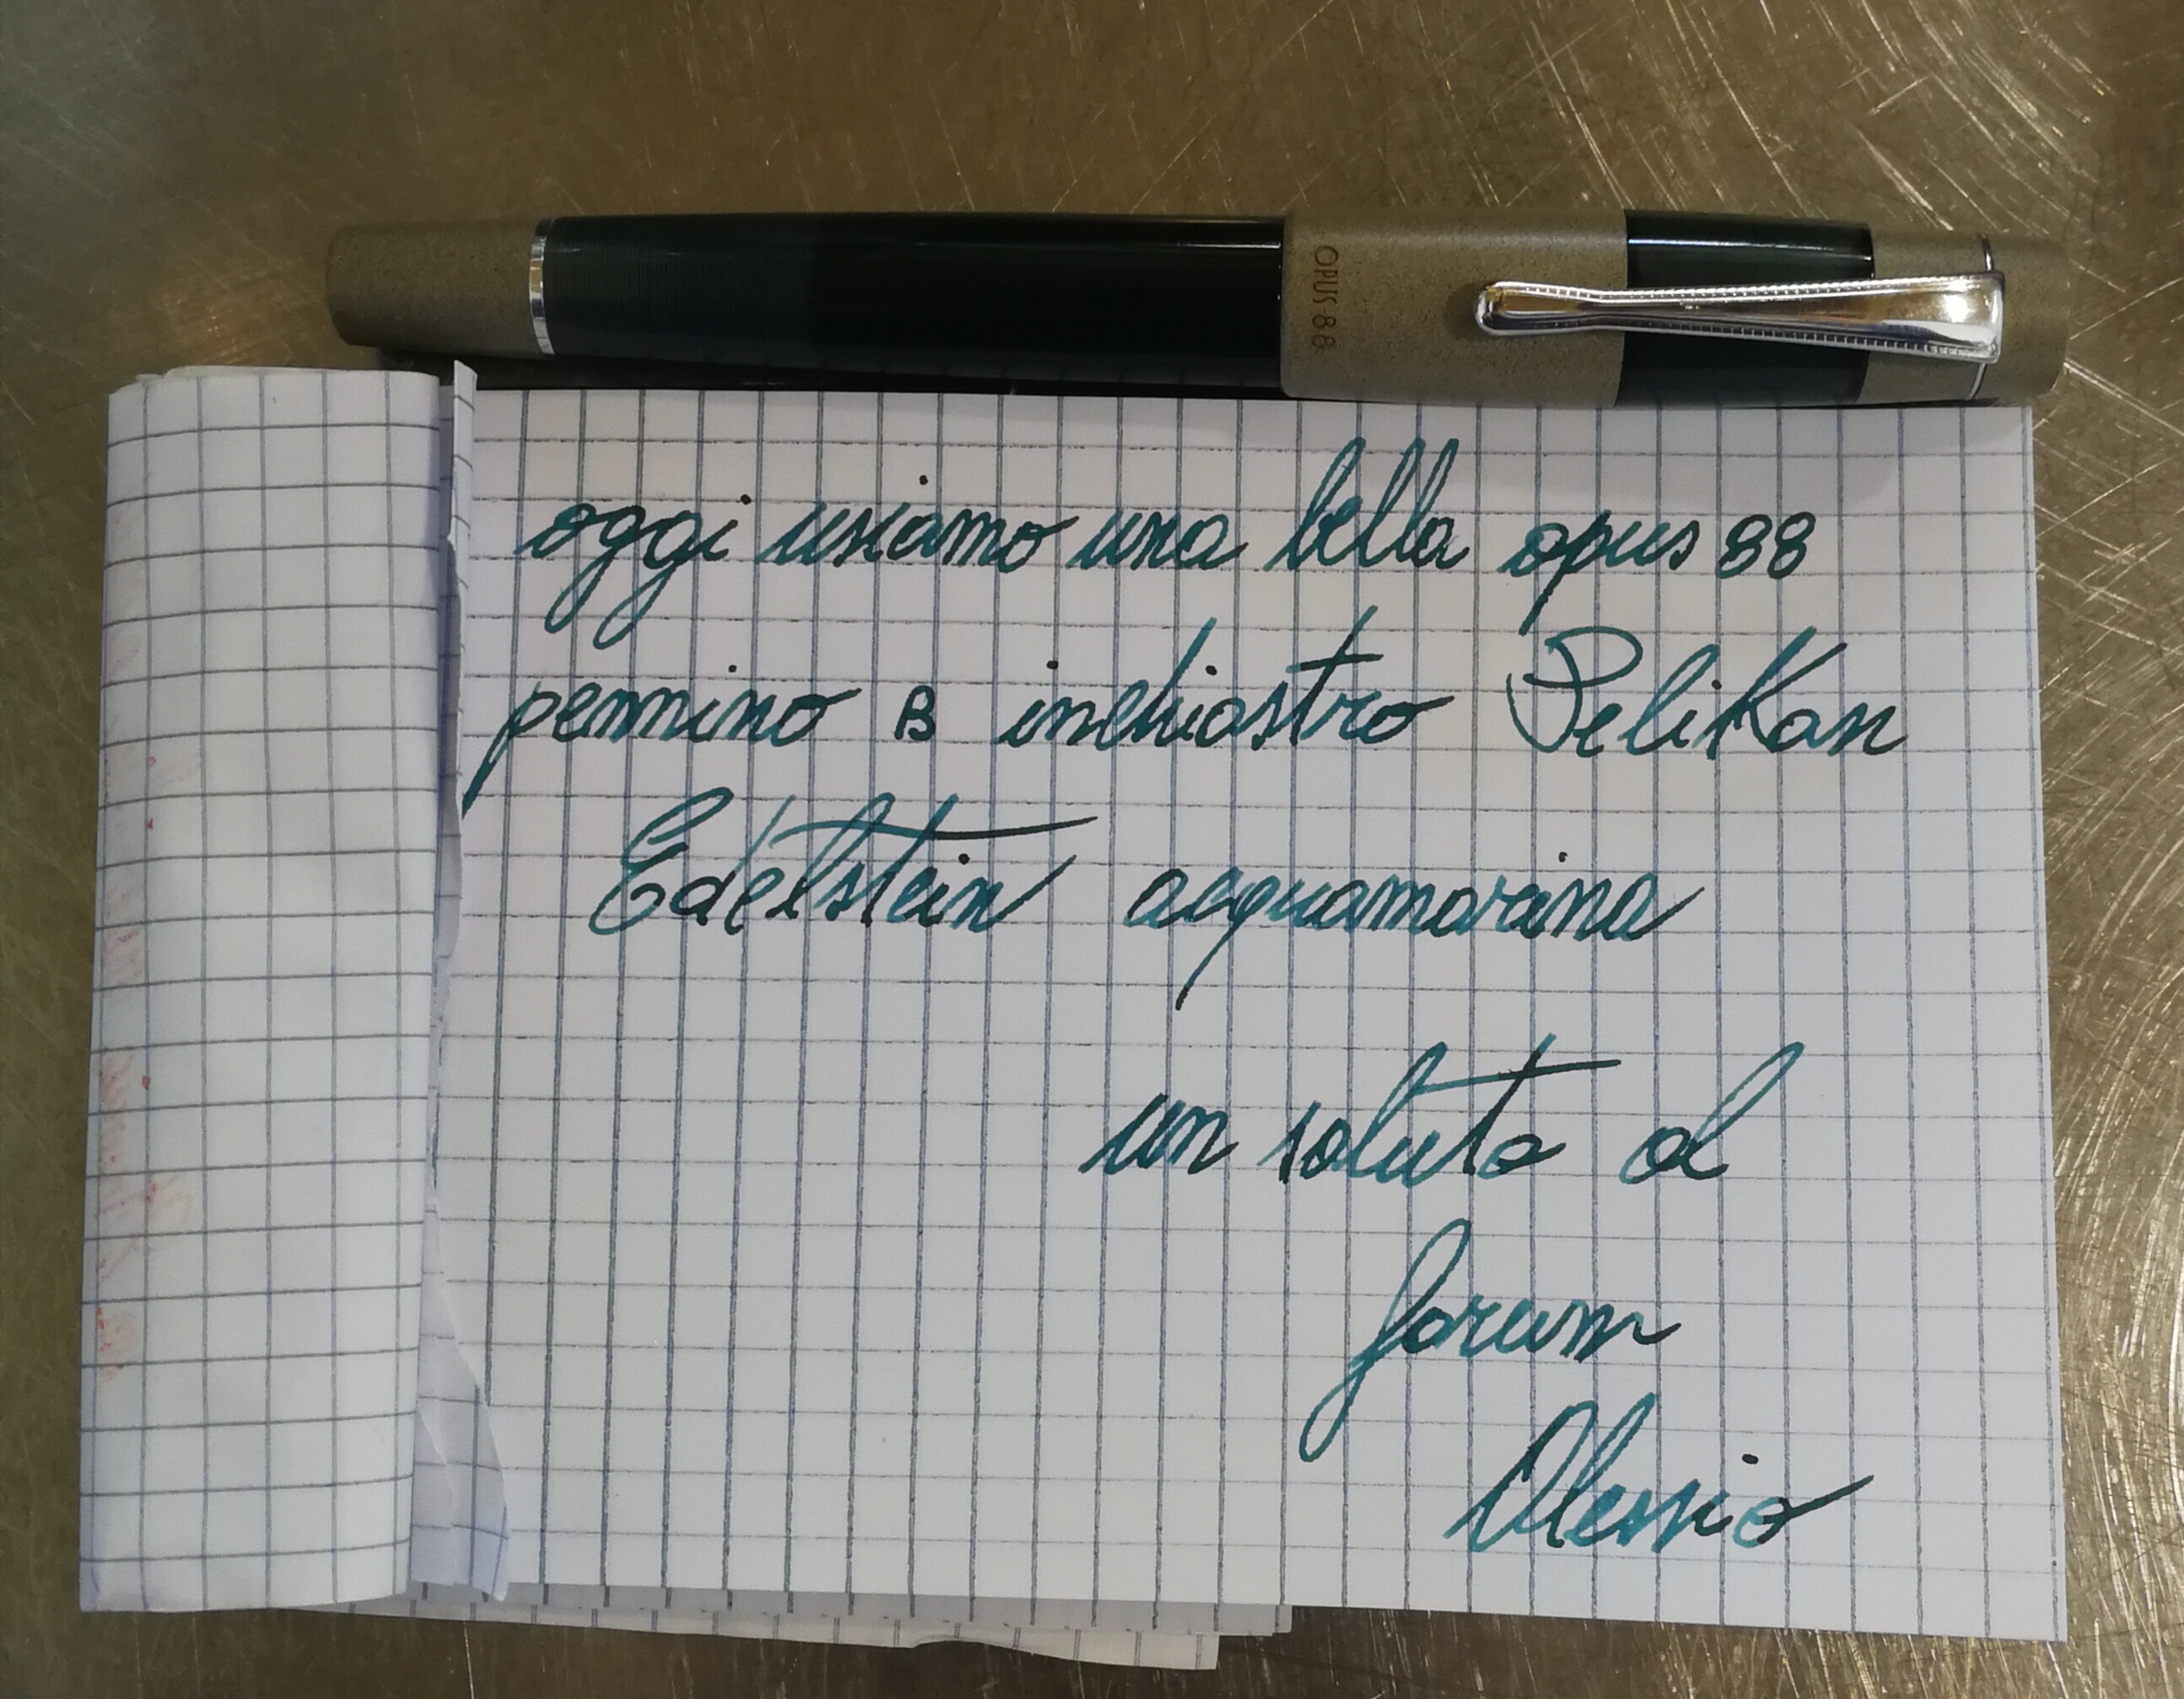 OPUS 88
oggi usiamo una bella opus 88
pennino B inchiostro Pelikan
Edelstein acquamarina
un saluto al
forum
Alessio